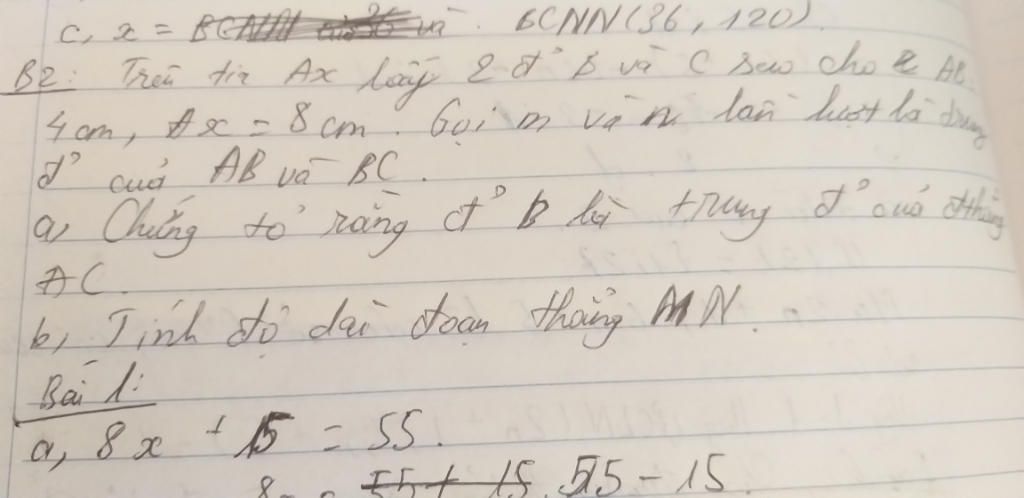 c, x = BCNN(36, 120)
B2: Trên tia Ax lấy 2 đ' B và C sao cho AB
4cm, Ax = 8cm. Gọi m và n lần lượt là trung
đ' của AB và BC.
a, Chứng tỏ rằng đ' B là trung đ' của đthẳng
AC.
b, Tính độ dài đoạn thẳng MN.
Bài 1:
a, 8x + 15 = 55.
55 + 15 55 - 15